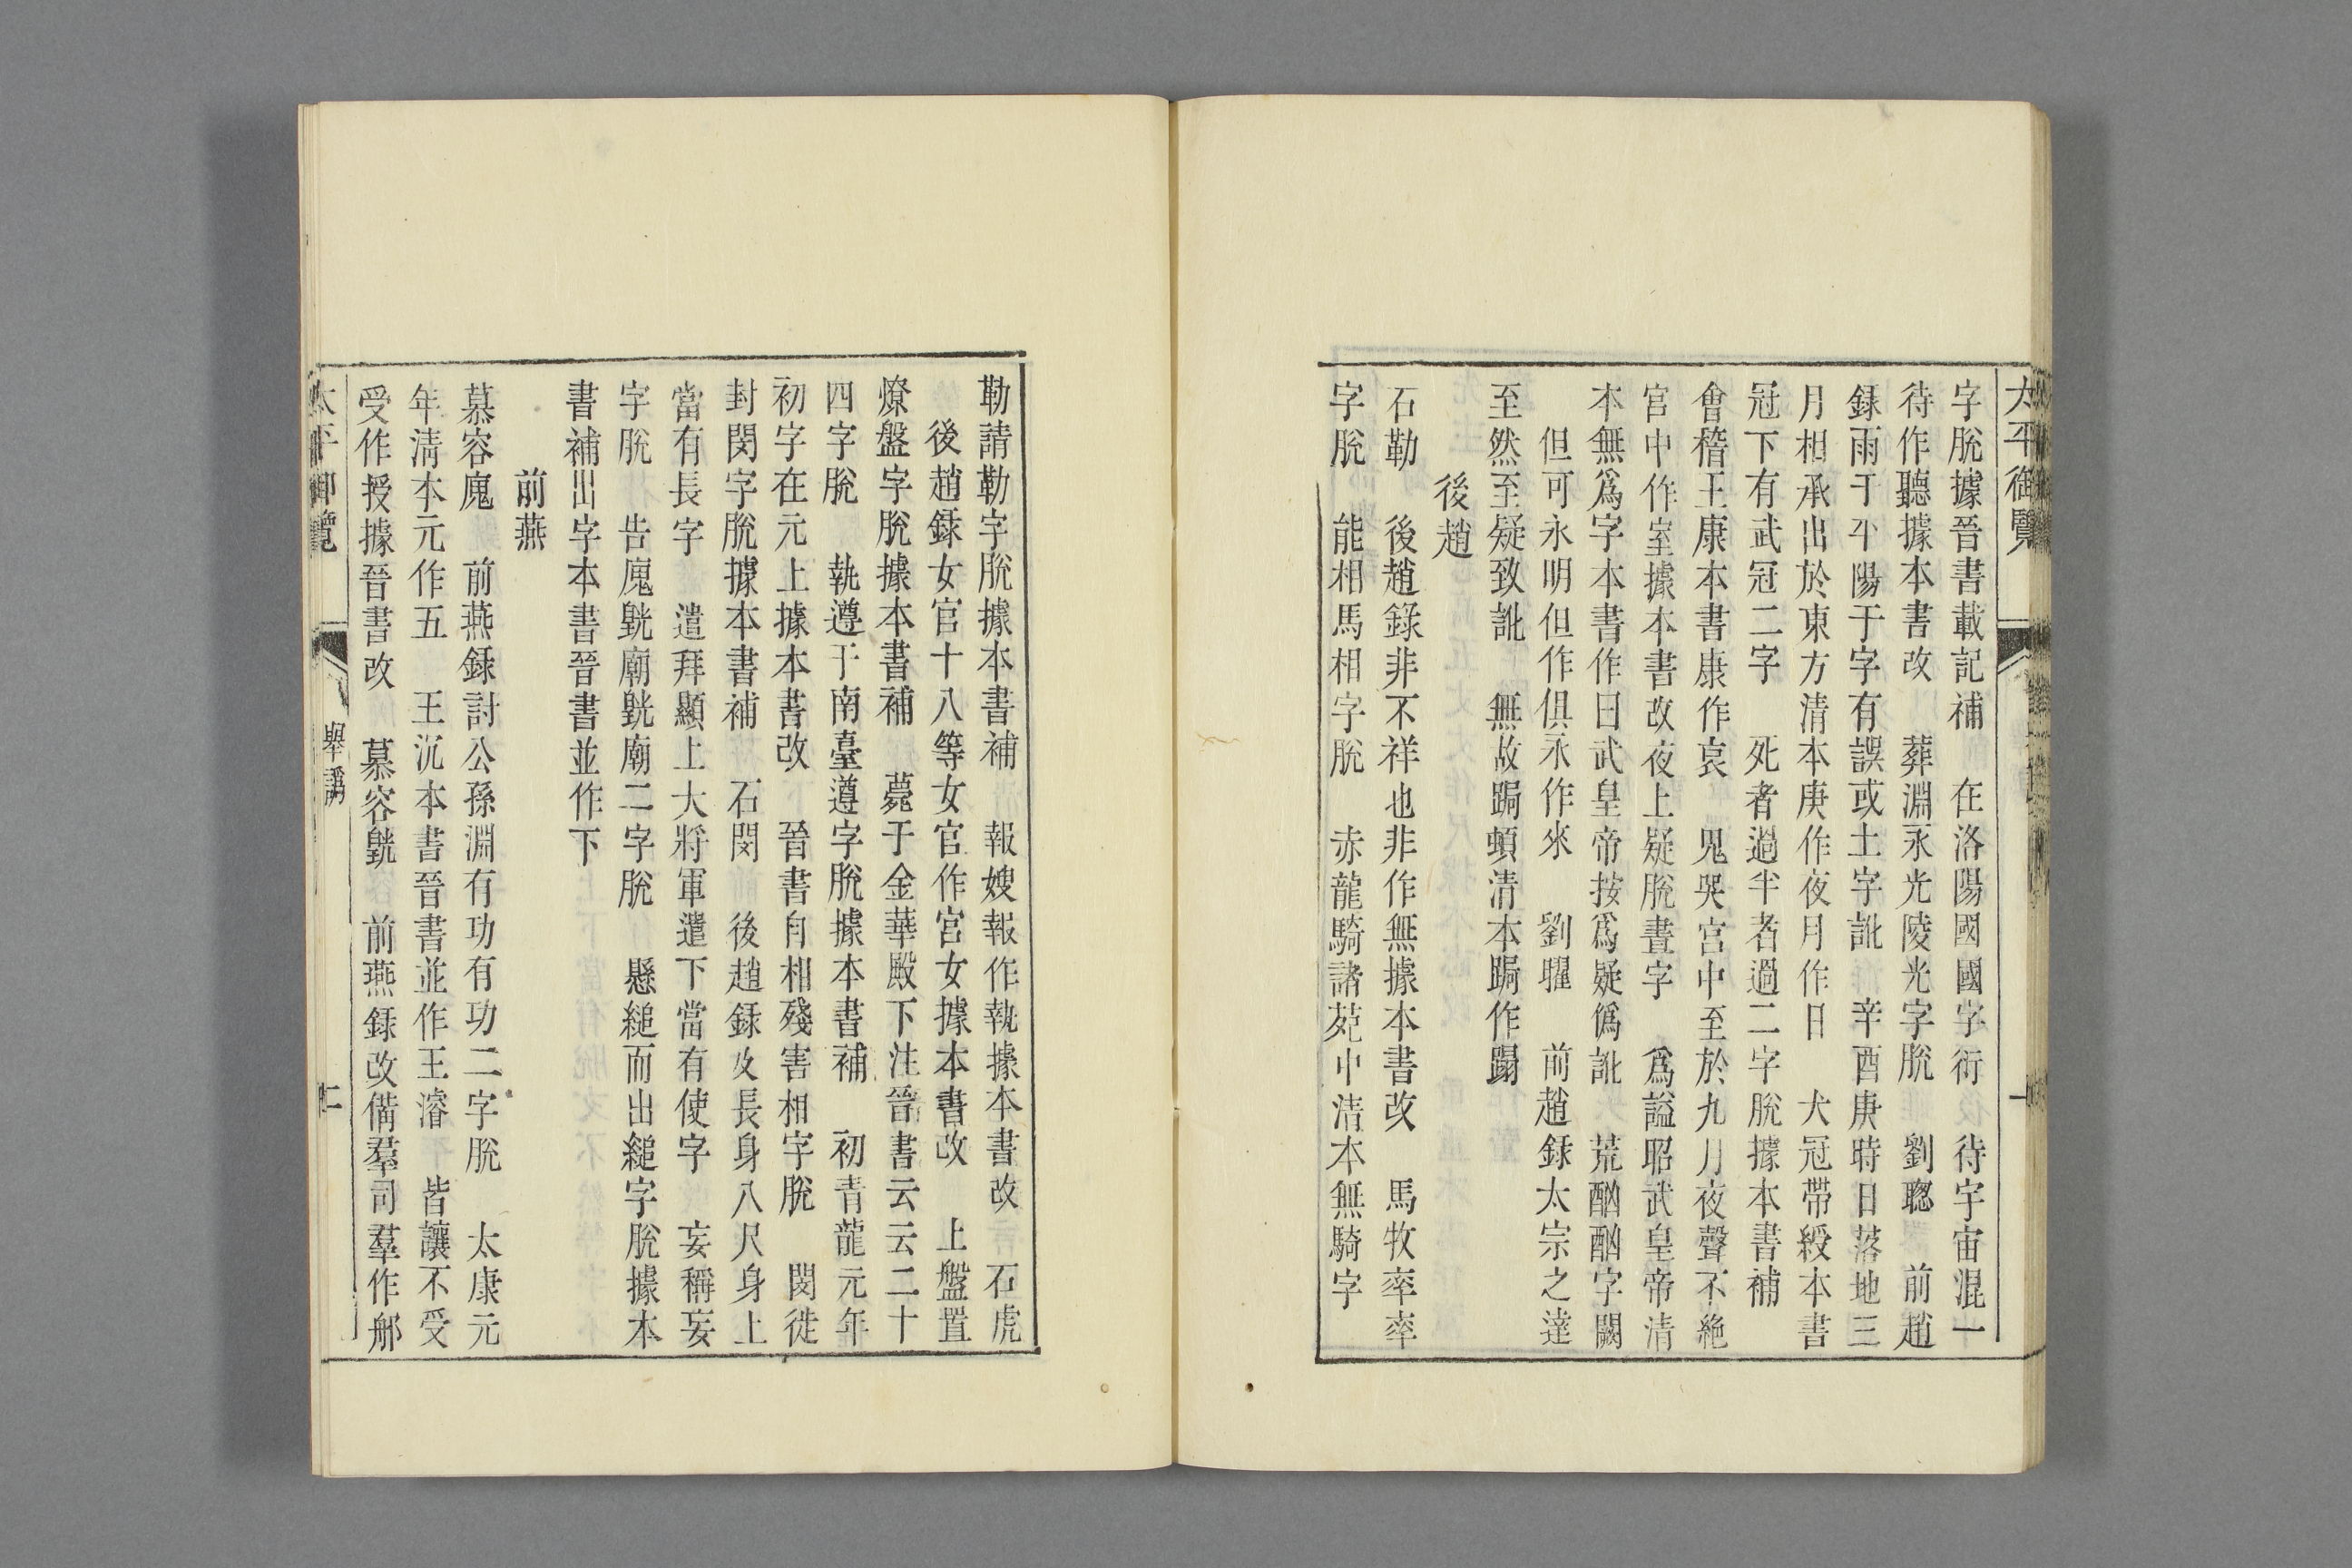 太平御覽
字脫據晉書載記補　在洛陽國國字衍　待宇宙混一
待作聽據本書改　葬淵永光陵光字脫　劉聰　前趙
錄雨于平陽于字有誤或土字訛　辛酉庚時日落地三
月相承出於東方清本庚作夜月作日　犬冠帶綬本書
冠下有武冠二字　死者過半者過二字脫據本書補
會稽王康本書康作哀　鬼哭宮中至於九月夜聲不絶
宮中作室據本書改夜上疑脫晝字　爲謚昭武皇帝清
本無爲字本書作曰武皇帝按爲疑僞訛　荒酗酗字闕
但可永明但作俱永作來　劉曜　前趙錄太宗之達
至然至疑致訛　無故跼頓清本跼作蹋
後趙
石勒　後趙錄非不祥也非作無據本書改　馬牧率率
字脫　能相馬相字脫　赤龍騎諸苑中清本無騎字
勒請勒字脫據本書補　報嫂報作執據本書改　石虎
後趙錄女官十八等女官作宮女據本書改　上盤置
燎盤字脫據本書補　薨于金華殿下注晉書云云二十
四字脫　執遵于南臺遵字脫據本書補　初青龍元年
初字在元上據本書改　晉書自相殘害相字脫　閔徙
封閔字脫據本書補　石閔　後趙錄及長身八尺身上
當有長字　遣拜顯上大將軍遣下當有使字　妄稱妄
字脫　告廆皝廟皝廟二字脫　懸縋而出縋字脫據本
書補出字本書晉書並作下
前燕
慕容廆　前燕錄討公孫淵有功有功二字脫　太康元
年清本元作五　王沉本書晉書並作王濬　皆讓不受
受作授據晉書改　慕容皝　前燕錄改備羣司羣作郡
太平御覽　舉譌　二